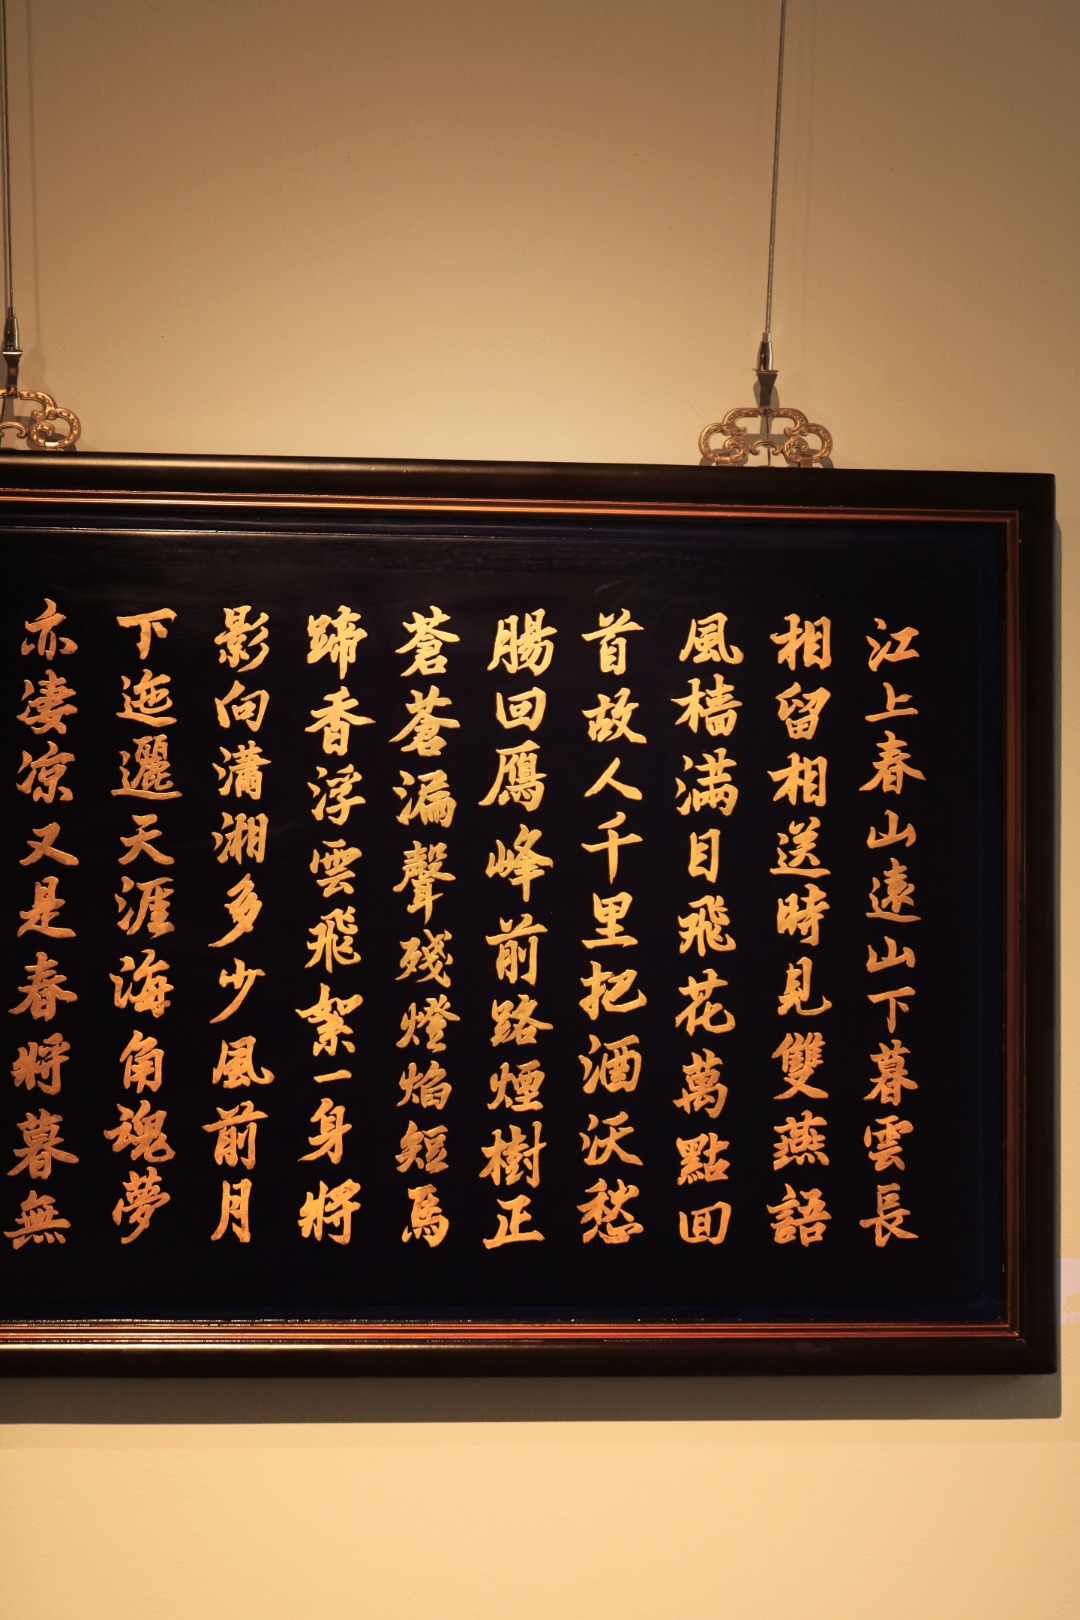 江上春山遠山下暮雲長
相留相送時見雙燕語
風檣滿目飛花萬點回
首故人千里把酒沃愁
腸回鴈峰前路煙樹正
蒼蒼漏聲殘燈焰短馬
蹄香浮雲飛絮一身將
影向瀟湘多少風前月
下迤邐天涯海角魂夢
亦凄凉又是春將暮無